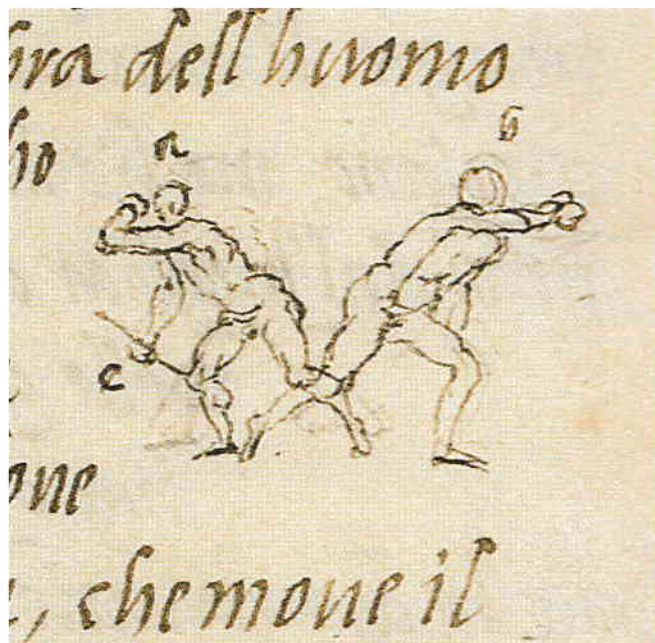 dell huomo
ho
a b
c
one
, che moue il